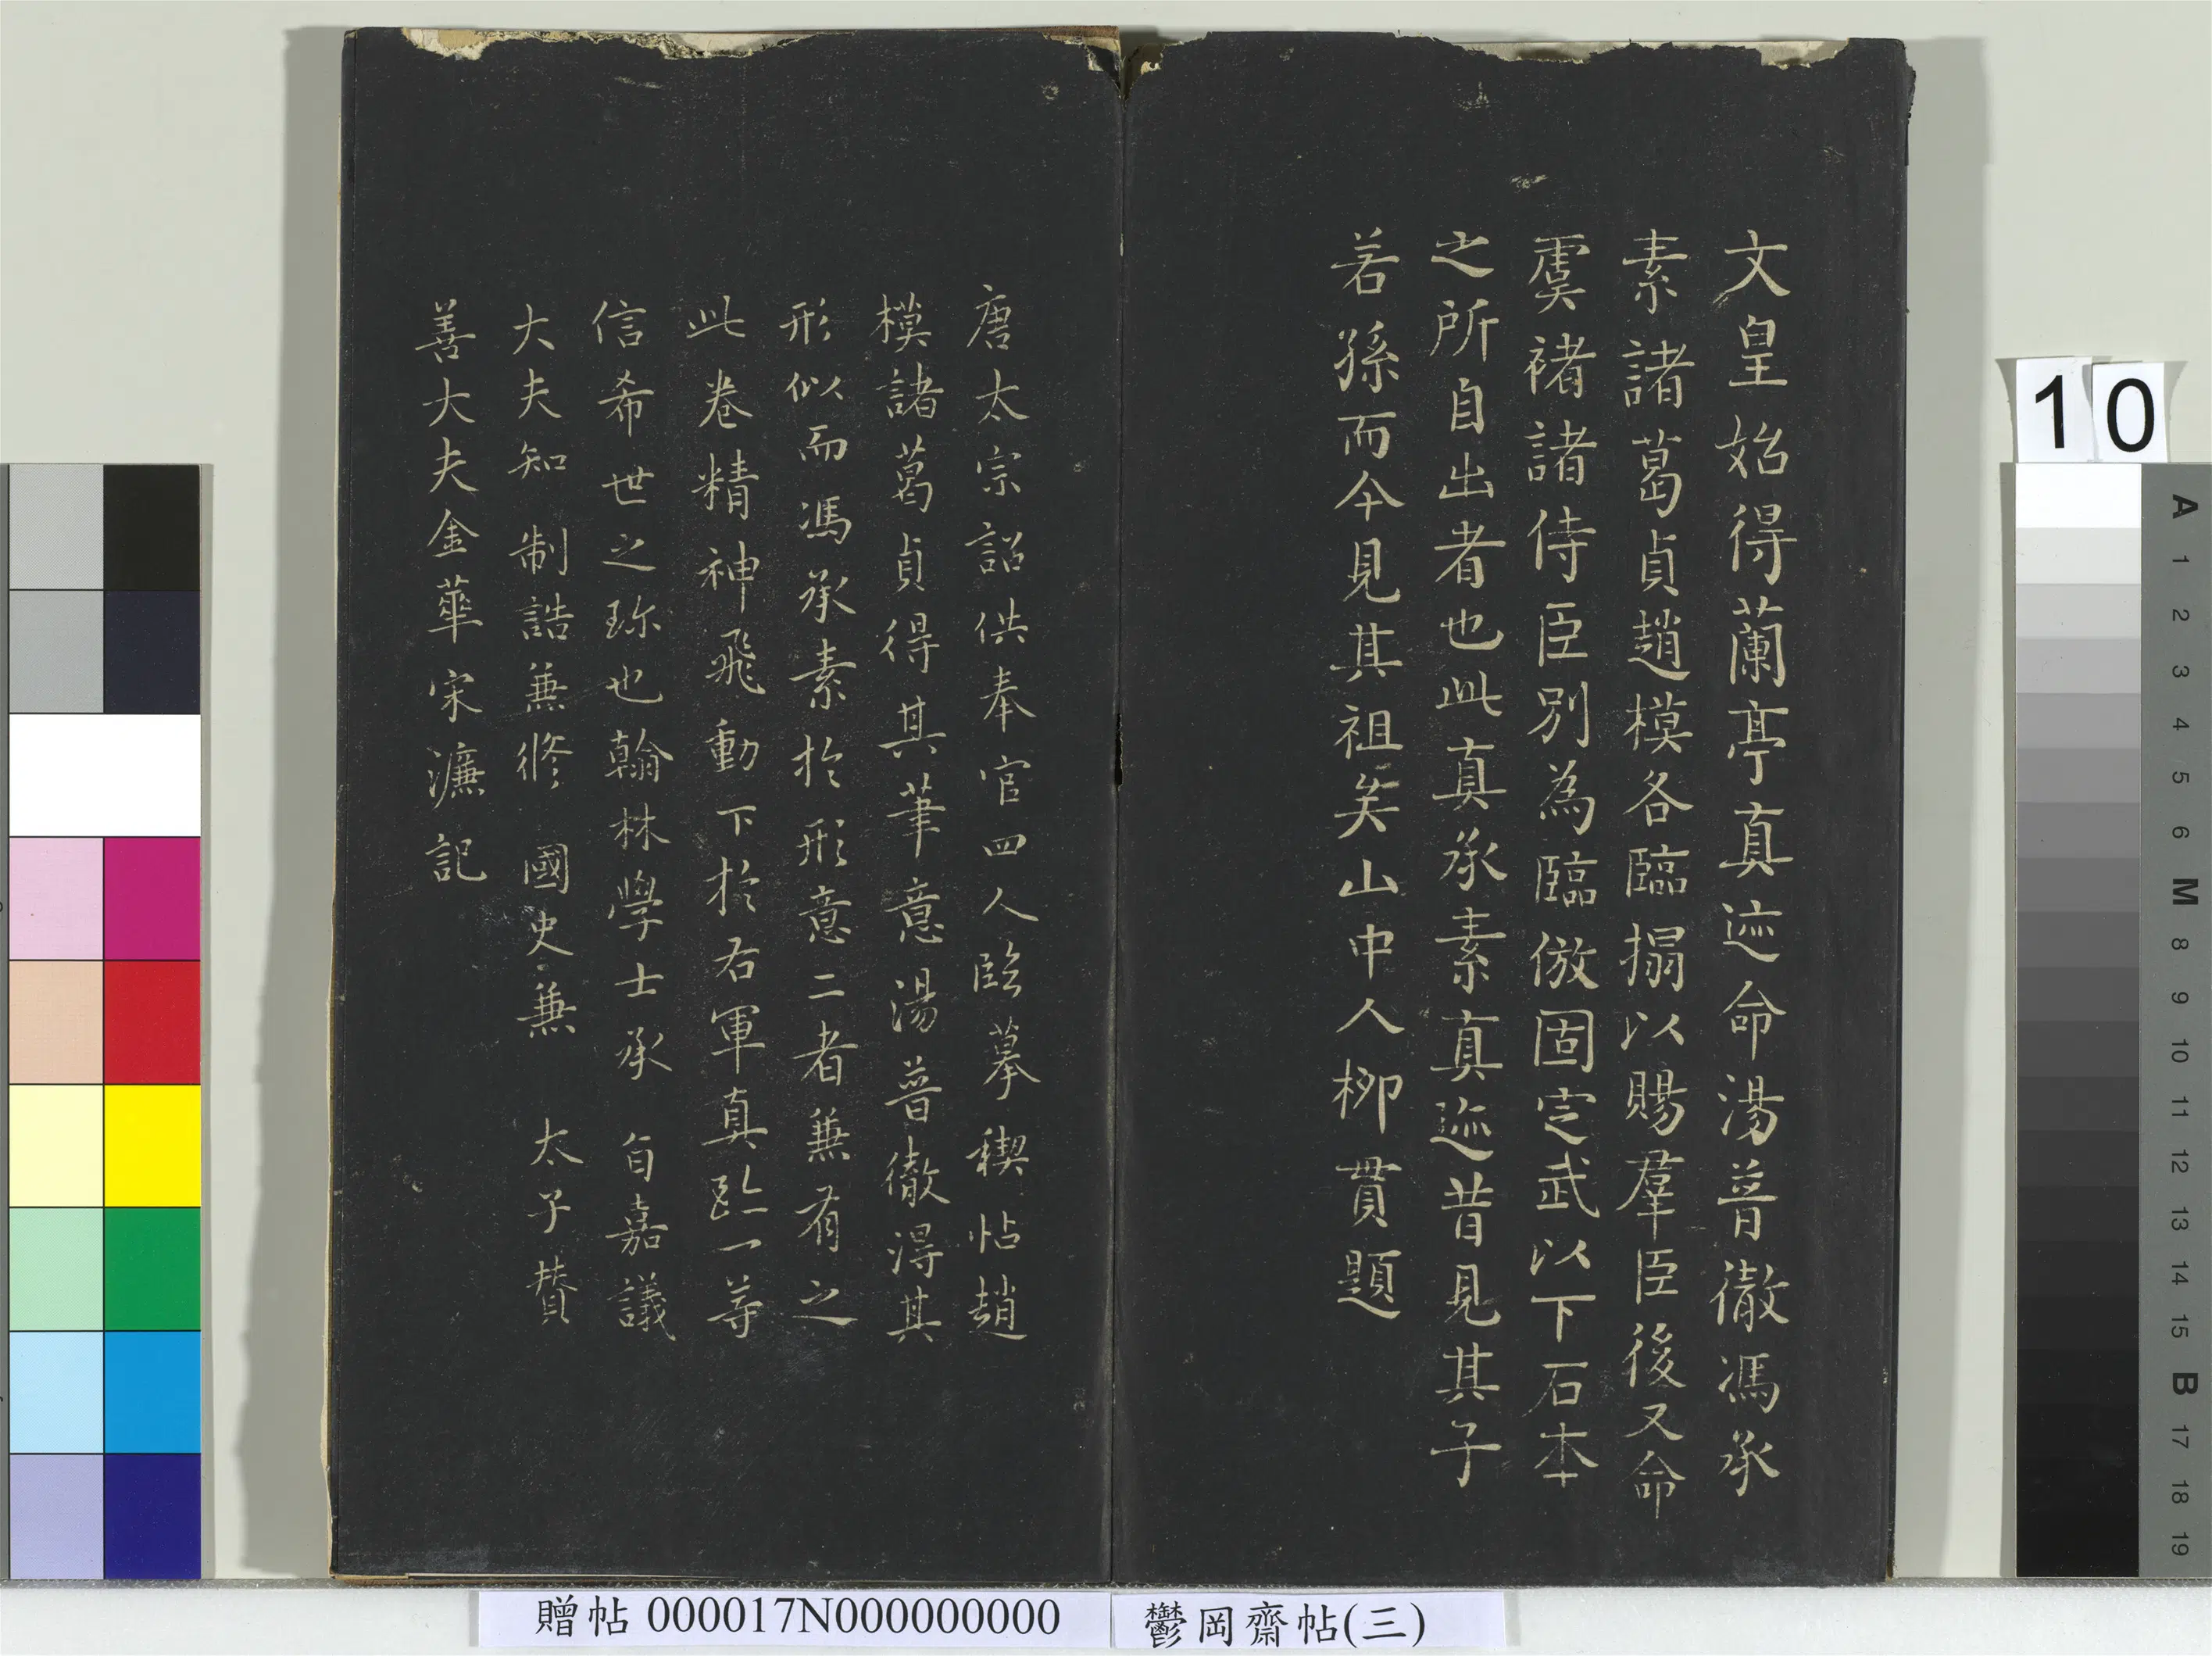 文皇始得蘭亭真迹命湯普徹馮承
素諸葛貞趙模各臨搨以賜羣臣後又命
虞褚諸侍臣別為臨倣固定武以下石本
之所自出者也此真承素真迹昔見其子
若孫而今見其祖矣山中人柳貫題
唐太宗詔供奉官四人臨摹禊帖趙
模諸葛貞得其筆意湯普徹得其
形似而馮承素於形意二者兼有之
此卷精神飛動下於右軍真跡一等
信希世之珎也翰林學士承 旨嘉議
大夫知 制誥兼修 國史兼 太子贊
善大夫金華宋濂記
10
A 1 2 3 4 5 6 M 8 9 10 11 12 13 14 15 B 17 18 19
贈帖 000017N000000000
鬱岡齋帖(三)